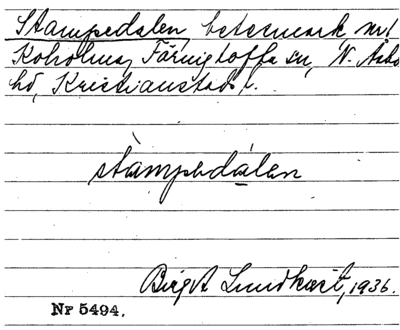 Stampedalen, betesmark, nr 1
Koholma, Färingtofta sn, N. Åsbo
hd, Kristianstads l.
stàmpedạlen
Birgit Lundkvist, 1936.
Nr 5494.